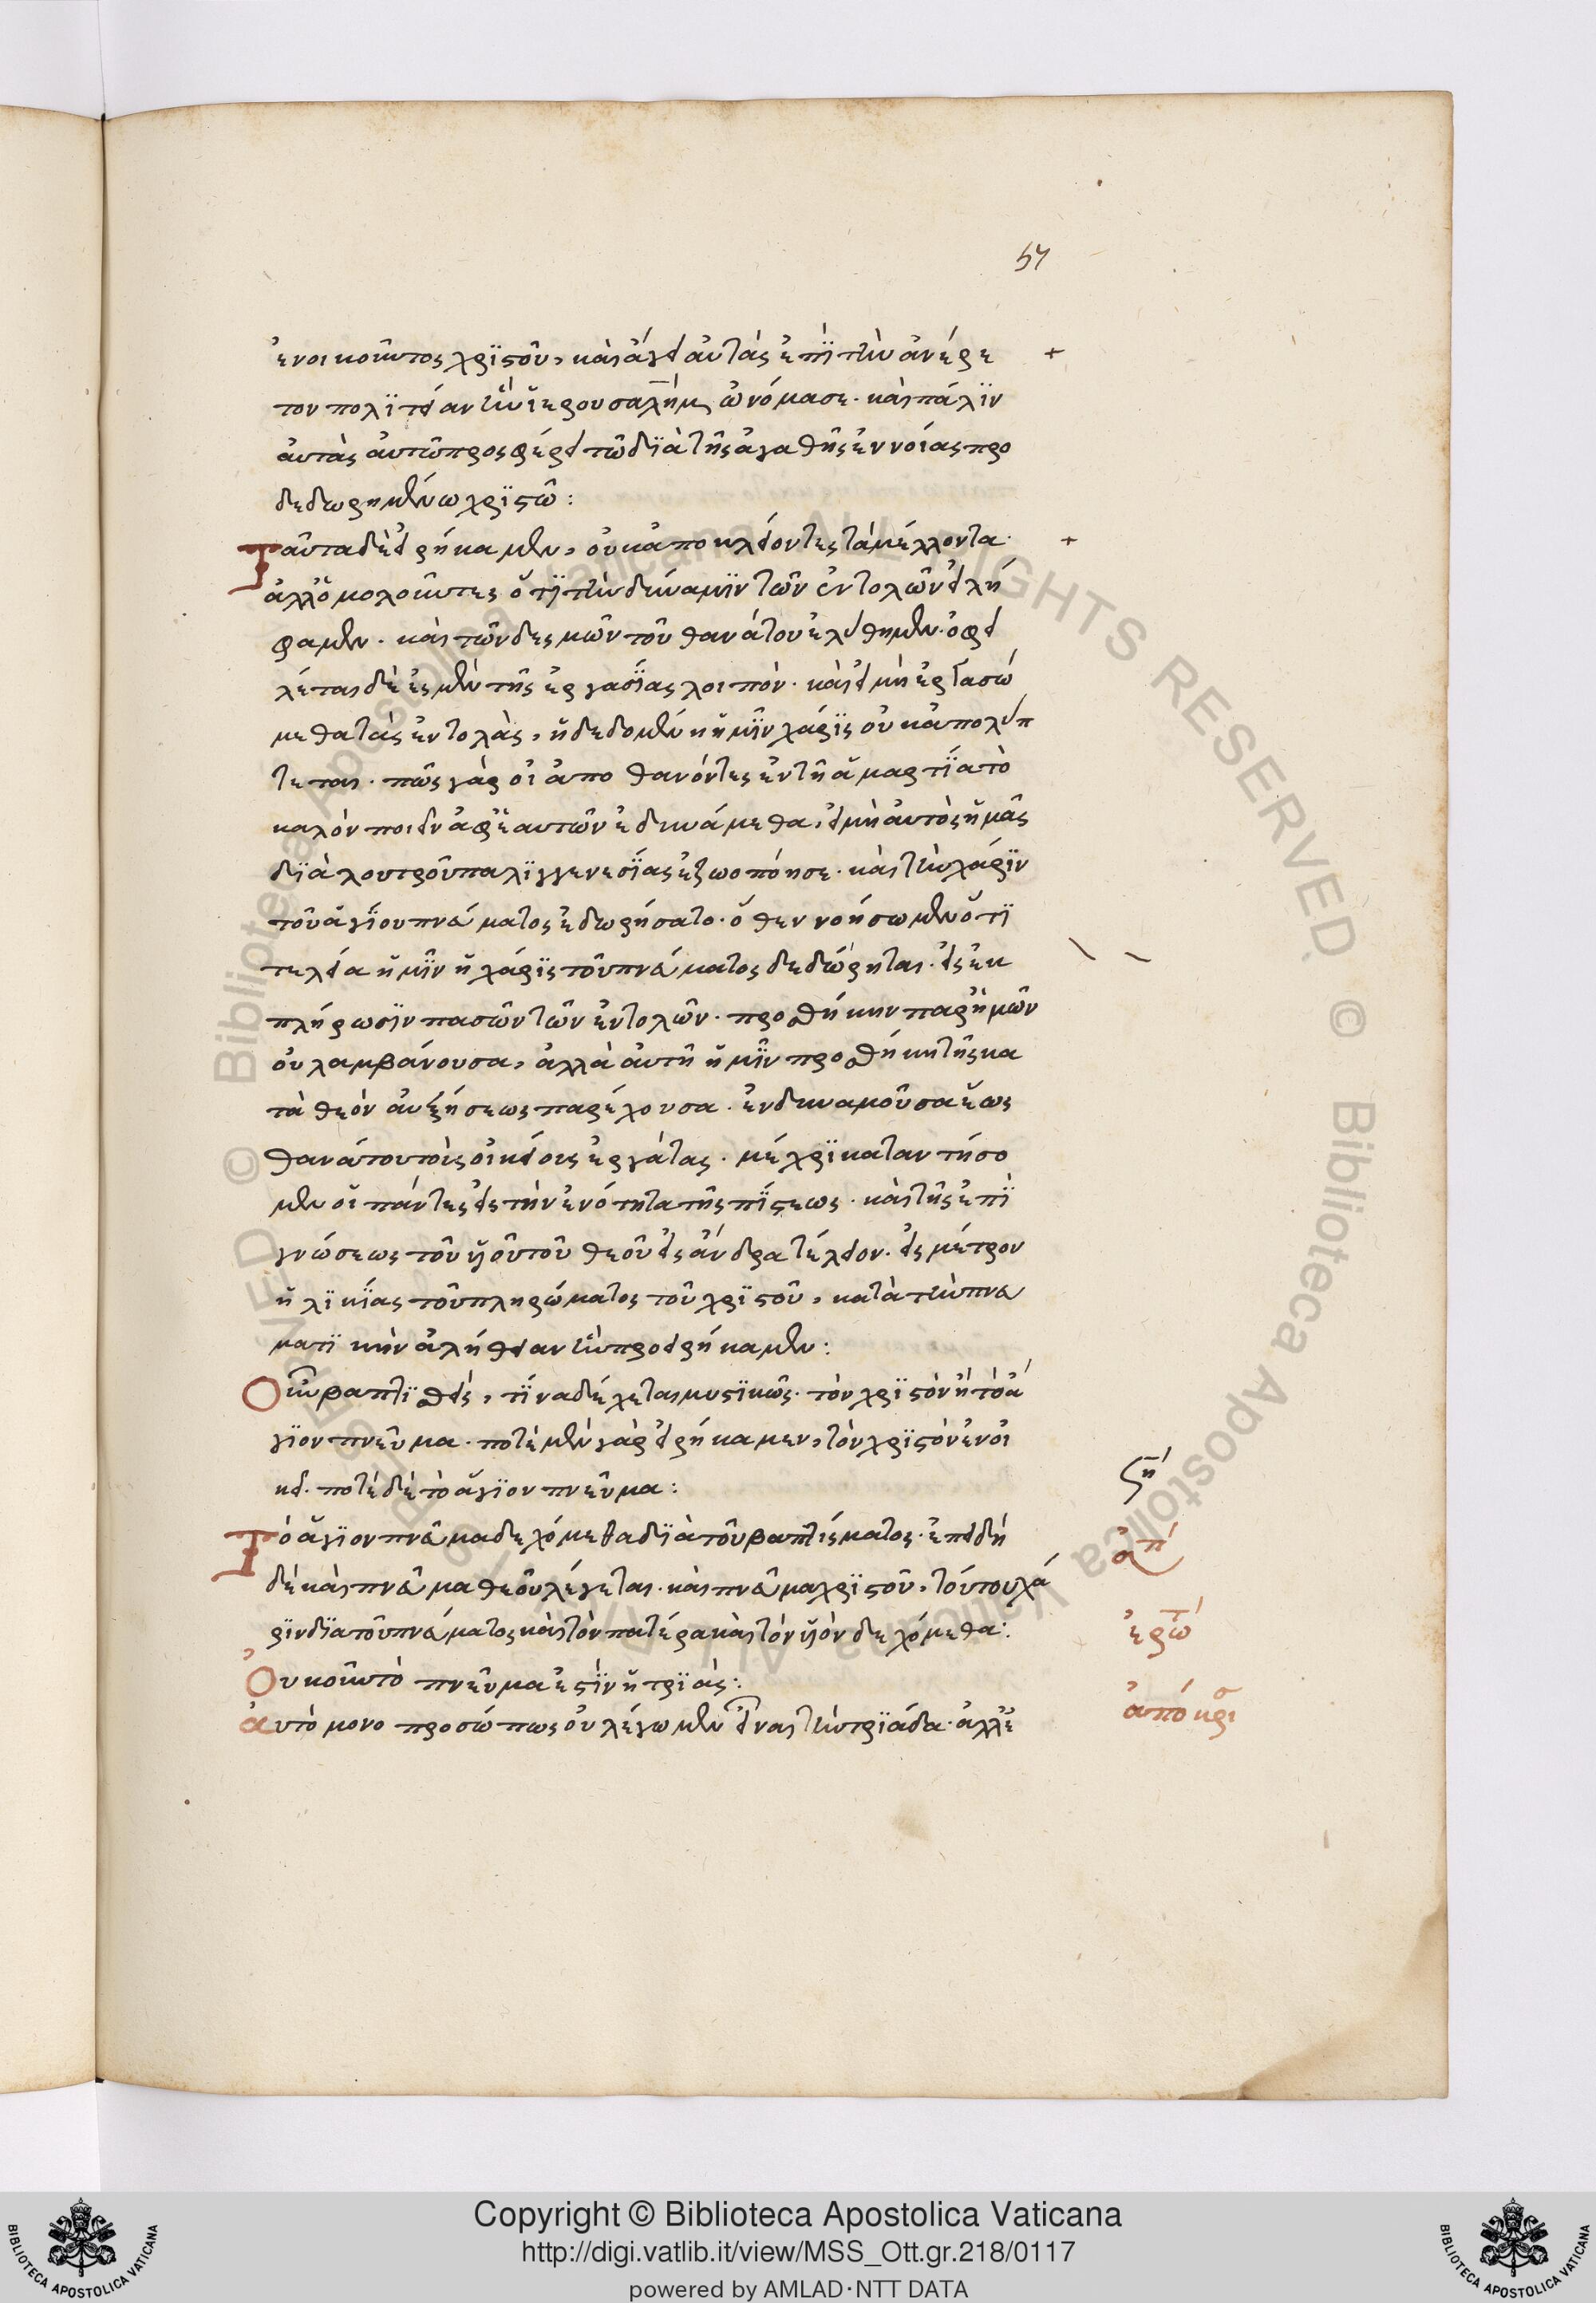 57
ἐνοικοῦντος χριστοῦ, καὶ ἄγει αὐτὰς ἐπὶ τὴν ἀνέρε +
τον πολιτείαν ἣν ἱερουσαλὴμ ὠνόμασε. καὶ πάλιν
αὐτὰς αὐτῶ προςφέρει τῶ διὰ τῆς ἀγαθῆς ἐννοίας προ
δεδωρημένω χριστῶ:
Ταῦτα δὲ εἰρήκαμεν, οὐκ ἀποκλείοντες τὰ μέλλοντα. +
ἀλλ' ὁμολογοῦντες ὅτι τὴν δύναμιν τῶν ἐντολῶν εἰλή
φαμεν. καὶ τῶν δεςμῶν τοῦ θανάτου ἐλύθημεν. ὀφει
λέται δὲ ἐσμὲν τῆς ἐργασίας λοιπόν. καὶ εἰ μὴ ἐργασώ
μεθα τὰς ἐντολὰς, ἡ δεδομένη ἡμῖν χάρις οὐκ ἀπολύπ
τεται. πῶς γὰρ οἱ ἀποθανόντες ἐν τῆ ἁμαρτία τὸ
καλὸν ποιεῖν ἀφ' ἑαυτῶν ἐδυνάμεθα, εἰ μὴ αὐτὸς ἡμᾶς
διὰ λουτροῦ παλιγγενεσίας ἐζωοποίησε. καὶ τὴν χάριν
τοῦ ἁγίου πνεύματος ἐδωρήσατο. ὅθεν νοήσωμεν ὅτι
τελεία ἡμῖν ἡ χάρις τοῦ πνεύματος δεδώρηται. εἰς ἐκ
πλήρωσιν πασῶν τῶν ἐντολῶν. προσθήκην παρ' ἡμῶν
οὐ λαμβάνουσα, ἀλλὰ αὐτὴ ἡμῖν προσθήκη τῆς κα
τὰ θεὸν αὐξήσεως παρέχουσα. ἐνδυναμοῦσα ἕως
θανάτου τοὺς οἰκείους ἐργάτας. μέχρι καταντήσο
μεν οἱ πάντες εἰς τὴν ἑνότητα τῆς πίστεως. καὶ τῆς ἐπι
γνώσεως τοῦ υἱοῦ τοῦ θεοῦ εἰς ἄνδρα τέλειον. εἰς μέτρον
ἡλικίας τοῦ πληρώματος τοῦ χριστοῦ, κατὰ τὴν πνευ
ματικὴν ἀλήθειαν ἣν προειρήκαμεν:
Ὁ οὖν βαπτισθεὶς, τίνα δέχεται μυστικῶς. τὸν χριστὸν ἢ τὸ ἅ
γιον πνεῦμα. ποτὲ μὲν γὰρ εἰρήκαμεν, τὸν χριστὸν ἐνοι
κεῖ. ποτὲ δὲ τὸ ἅγιον πνεῦμα:
Τὸ ἅγιον πνεῦμα δεχόμεθα διὰ τοῦ βαπτίσματος. ἐπειδὴ
δὲ καὶ πνεῦμα θεοῦ λέγεται. καὶ πνεῦμα χριστοῦ, τούτου χά
ριν διὰ τοῦ πνεύματος καὶ τὸν πατέρα καὶ τὸν υἱὸν δεχόμεθα:
Οὐκοῦν τὸ πνεῦμα ἐστὶν ἡ τριάς:
αὐτὸ μονοπροσώπως οὐ λέγωμεν εἶναι τὴν τριάδα. ἀλλ' ἐ
ἐρώ
ἀπόκρισ
Copyright © Biblioteca Apostolica Vaticana
http://digi.vatlib.it/view/MSS_Ott.gr.218/0117
powered by AMLAD·NTT DATA